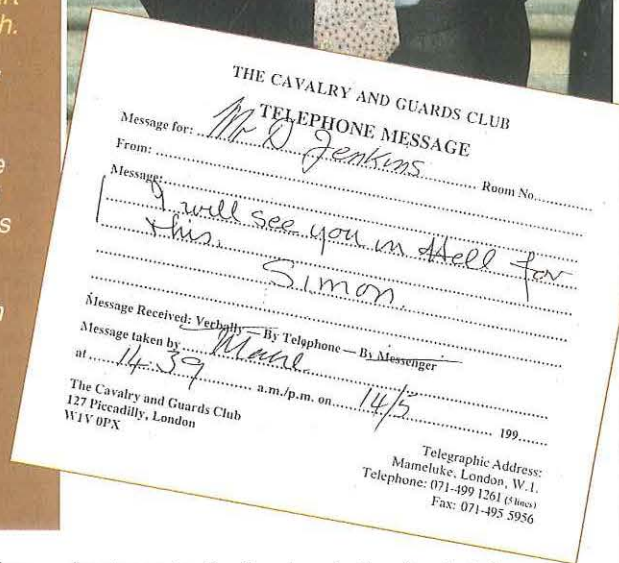 h.
e
s
n
THE CAVALRY AND GUARDS CLUB
TELEPHONE MESSAGE
Message for: Mr D Jenkins Room No.
From:
Message:
I will see you in Hell for
this.
Simon.
Message Received: Verbally — By Telephone — By Messenger
Message taken by
at 14:39 a.m./p.m. on 14/5 199
The Cavalry and Guards Club
127 Piccadilly, London
W1V 0PX
Telegraphic Address:
Mameluke, London, W.1.
Telephone: 071-499 1261 (5 lines)
Fax: 071-495 5956